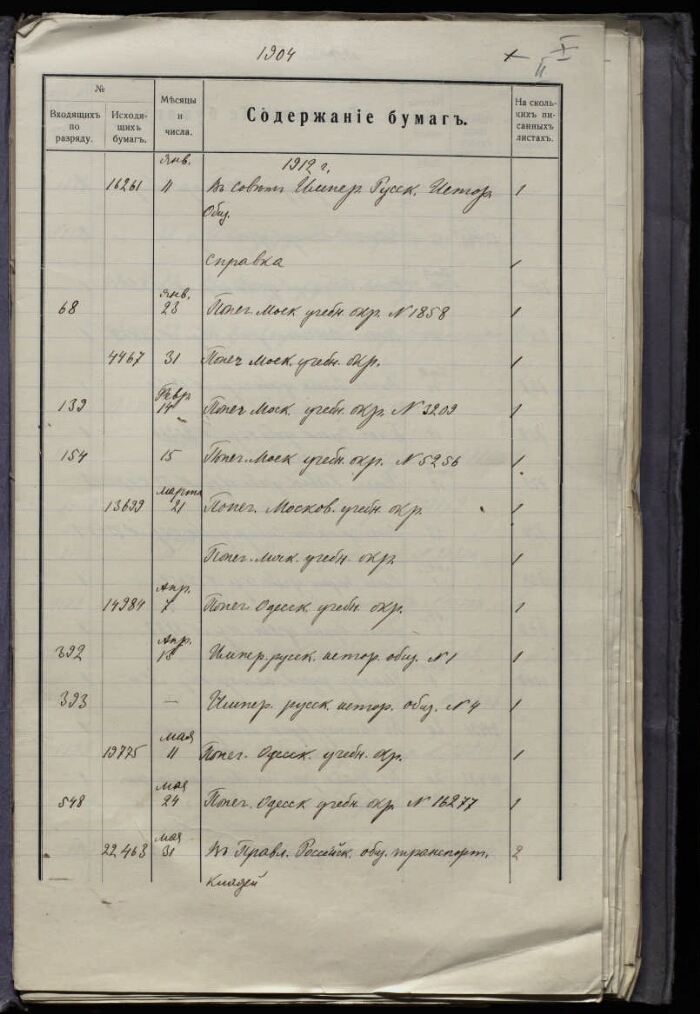 1904
№
Входящихъ по разряду.
Исходящихъ бумагъ.
Мѣсяцы и числа.
Содержаніе бумагъ.
На сколькихъ писанныхъ листахъ.
Янв. 1912 г.
16261 11 Въ совѣтъ Импер. Русск. Истор. 1
Общ.
Справка 1
Янв.
68 23 Попеч. Моск. учебн. окр. № 1858 1
4467 31 Попеч. Моск. учебн. окр. 1
Февр.
139 14 Попеч. Моск. учебн. окр. № 3209 1
154 15 Попеч. Моск. учебн. окр. № 5256 1
Марта
13699 21 Попеч. Москов. учебн. окр. 1
Попеч. Моск. учебн. окр. 1
Апр.
14984 7 Попеч. Одесск. учебн. окр. 1
Апр.
392 18 Импер. русск. истор. общ. № 1 1
393 — Импер. русск. истор. общ. № 4 1
Мая
19775 11 Попеч. Одесск. учебн. окр. 1
Мая
548 24 Попеч. Одесск. учебн. окр. № 16277 1
Мая
22463 31 Въ Правл. Россійск. общ. транспорт. 2
кладей